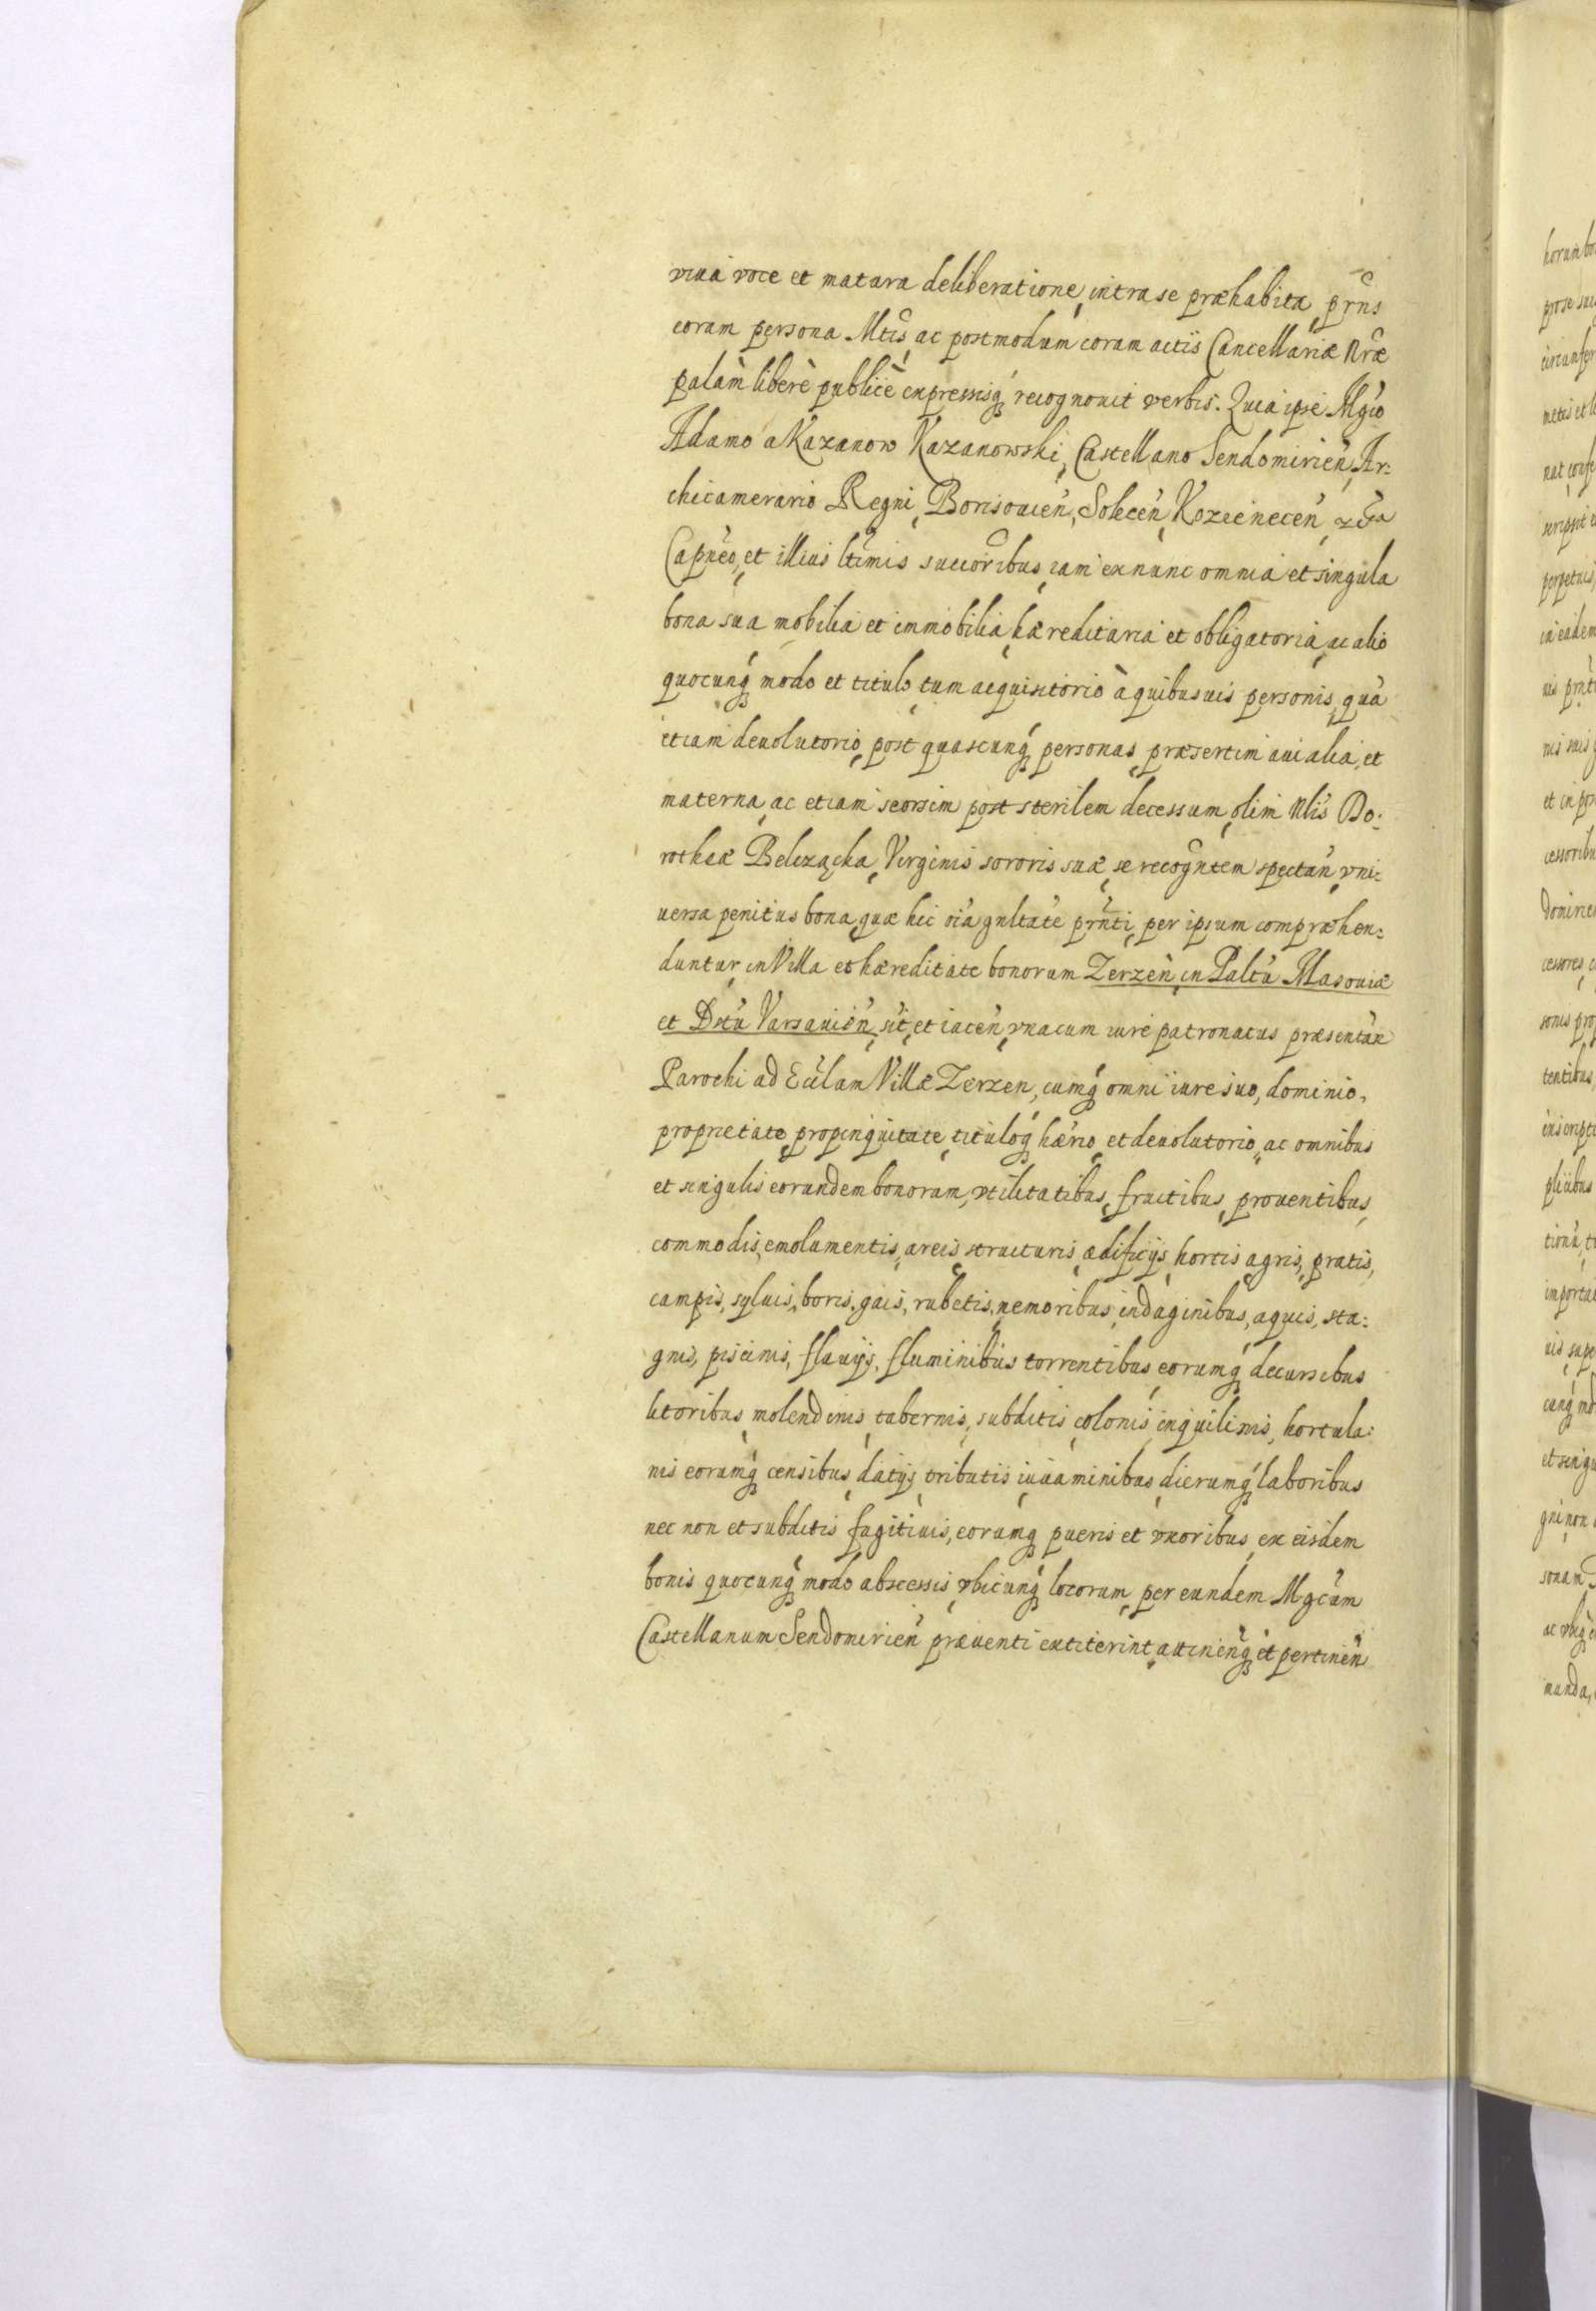 viua voce et matura deliberatione, intra se præhabita, prn͂s
coram persona Mtis, ac postmodum coram actis Cancellariæ Nræ
palàm liberè publicè expressisq́ recognouit verbis. Quia ipse Mgco
Adamo a Kazanow Kazanowski, Castellano Sendomirien̉, Ar:
chicamerario Regni, Borisouien̉, Solecen̉, Kozienecen̉,
Capneo, et illius ltimis succoribus, iam ex nunc omnia et singula
bona sua mobilia et immobilia, hæreditaria et obligatoria, ac alio
quocunq́ modo et titulo, tum acquisitorio à quibusuis personis, quà
etiam deuolutorio, post quascunq́ personas, præsertim auialia, et
materna, ac etiam seorsim post sterilem decessum, olim Nlis Do:
rotheæ Belczącka, Virginis sororis suæ, se recogn͂tem spectan̉, vni:
uersa penitus bona, quæ hic oia gnltate prn͂ti, per ipsum compræhen:
duntur, in Villa et hæreditate bonorum Zerzen̉, in Paltu Masouiæ
et Drctu Varsauien̉, sit, et iacen̉, vnacum iure patronatus præsentañ
Parochi ad Ecclam Villæ Zerzen, cumq́ omni iure suo, dominio,
proprietate, propinquitate, tituloq́ hærio, et deuolutorio, ac omnibus
et singulis eorundem bonorum, vtilitatibus, fructibus, prouentibus,
commodis, emolumentis, areis, structuris, ædificijs, hortis, agris, pratis,
campis, syluis, boris, gais, rubetis, nemoribus, indaginibus, aquis, sta:
gnis, piscinis, fluuijs, fluminibus torrentibus, eorumq́ decursibus
litoribus, molendinis, tabernis, subditis, colonis, inquilinis, hortula:
nis eorumq́ censibus, datijs, tributis, iuuaminibus, dierumq́ laboribus
nec non et subditis fugitiuis, eorumq́ pueris et vxoribus, ex eisdem
bonis quocunq́ modo abscessis, vbicunq́ locorum, per eundem Mgcum
Castellanum Sendomirien̉ præuenti extiterint, attinen̉q́ et pertinen̉